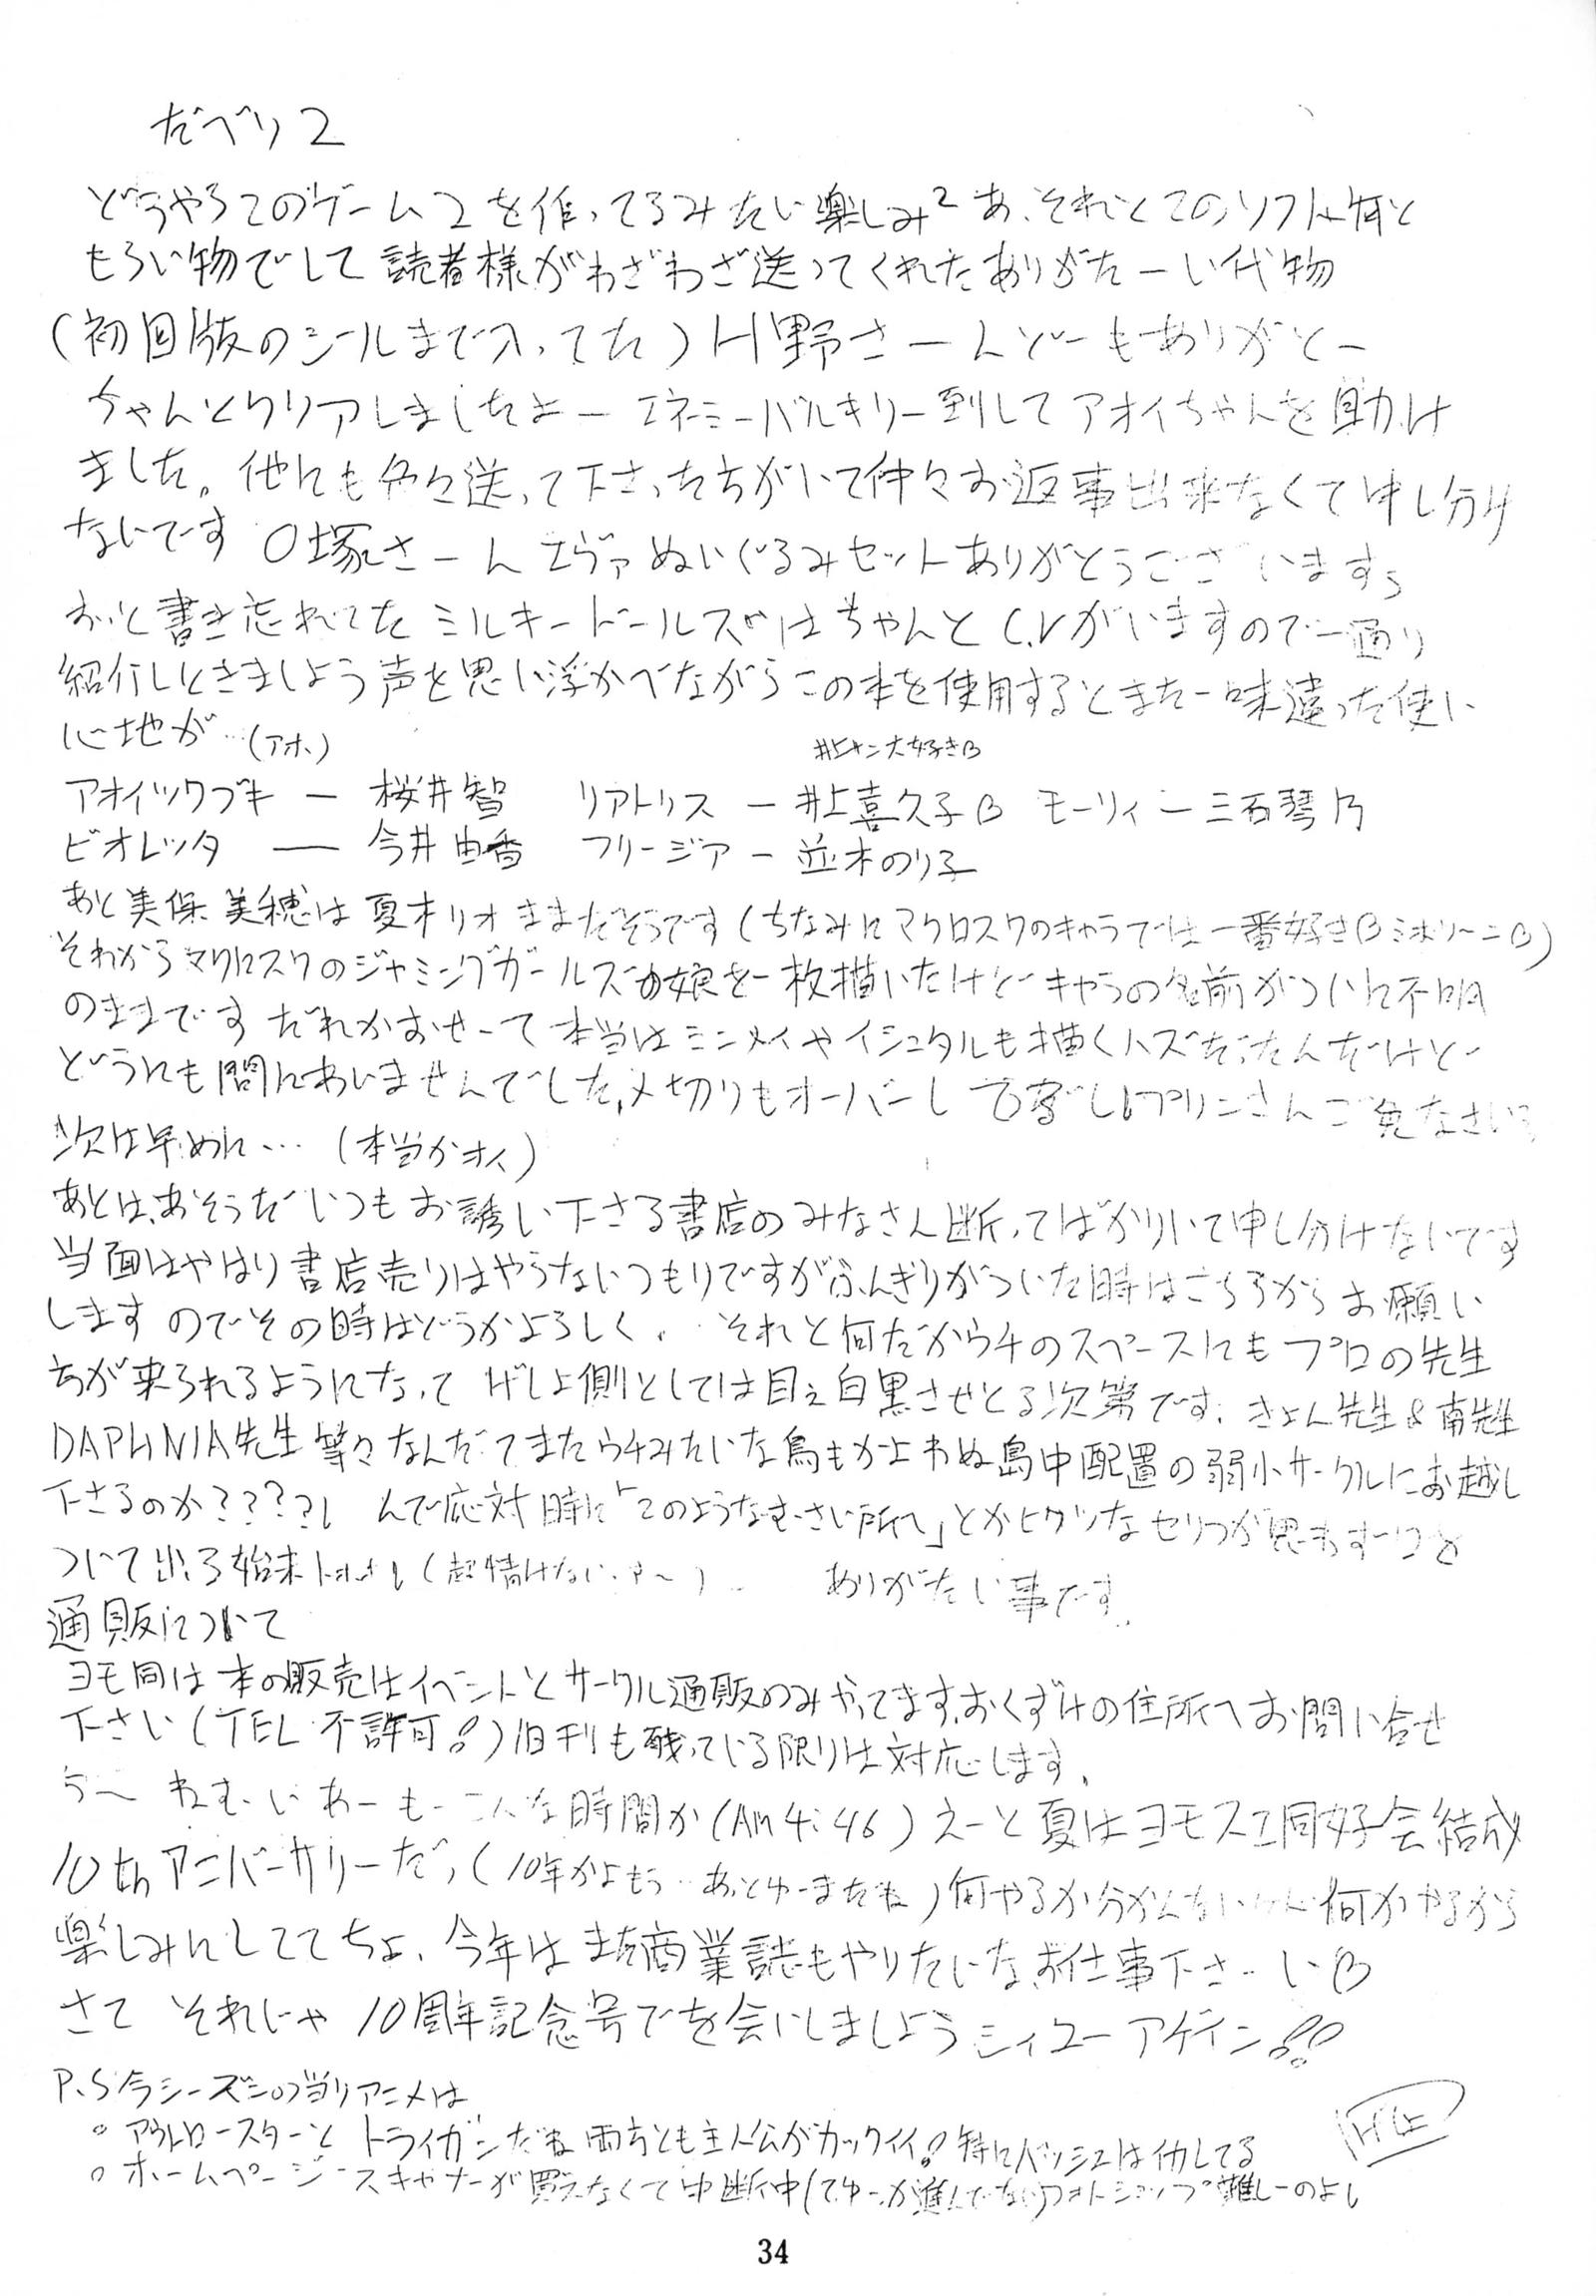 だべり2
どうやらこのゲーム2を作ってるみたい楽しみ²あ、それとこのソフト何と
もらい物でして読者様がわざわざ送ってくれたありがたーい代物
(初回版のシールまで入ってた)H野さーんどーもありがとー
ちゃんとクリアしましたよーエネミーバルキリー倒してアオイちゃんを助け
ました。他にも色々送って下さった方がいて仲々お返事出来なくて申し分け
ないです O塚さーんエヴァぬいぐるみセットありがとうございます。
おっと書き忘れてたミルキードールズはちゃんとC.Vがいますので一通り
紹介しときましょう声を思い浮かべながらこの本を使用するとまた一味違った使い
心地が…(アホ)
大好き
アオイツワブキ ー 桜井智 リアトリス ー 井上喜久子 モーリィー三石琴乃
ビオレッタ ー 今井由香 フリージア ー 並木のり子
あと美保美穂は夏木リオままだそうです(ちなみにマクロス7のキャラでは一番好き ミホリ〜ニ)
それからマクロス7のジャミングガールズの娘を一枚描いたけどキャラの名前がついに不明
のままです だれかおせーて 本当はミンメイやイシュタルも描くハズだったんだけど
どうにも間にあいませんでした〆切りもオーバーし プリンさんご免なさい
次は早めに…(本当かオイ)
あとは、あそうだいつもお誘い下さる書店のみなさん断ってばかりいて申し分けないです
当面はやはり書店売りはやらないつもりですがふんぎりがついた時はこちらからお願い
しますのでその時はどうかよろしく. それと何だかウチのスペースにもプロの先生
ちが来られるようになって げしょ側としては目ぇ白黒させとる次第です. きょん先生&南先生
DAPHNIA先生 等々なんだってまたウチみたいな鳥もかよわぬ島中配置の弱小サークルにお越し
下さるのか???? んで応対時に「このようなむさい所へ」とかヒクツなセリフが思わず口を
ついて出る始末 (超情けないっす〜). ありがたい事です.
通販について
ヨモ同は本の販売はイベントとサークル通販のみやってます.おくずけの住所へお問い合せ
下さい(TEL 不許可!)旧刊も残っている限りは対応します.
う〜 ねむいわーもーこんな時間か(Am 4:46)えーと夏はヨモスエ同好会結成
10thアニバーサリーだっ(10年かよもう…あっとゆーまだね)何やるか分かんないけど何かやるから
楽しみにしててちょ. 今年はまた商業誌もやりたいな.お仕事下さーい
さて それじゃ 10周年記念号でお会いしましょうシィユーアゲイン!!
P.S今シーズンの当りアニメは
。アウトロースターとトライガンだね両方とも主人公がカックイイ!特にバッシュはイカしてる
。ホームページ スキャナーが買えなくて中断中(てゆーか進んでない)フォトショップ難しーのよ
34